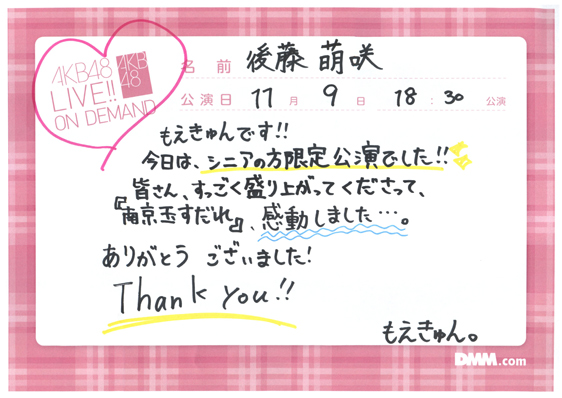 AKB48
LIVE!!
ON DEMAND
AKB
48
名 前 後藤 萌咲
公演日 11 月 9 日 18:30 公演
もえきゅんです!!
今日は、シニアの方限定公演でした!!
皆さん、すっごく盛り上がってくださって、
『南京玉すだれ』、感動しました…。
ありがとう ございました!
Thank you!!
もえきゅん。
DMM.com